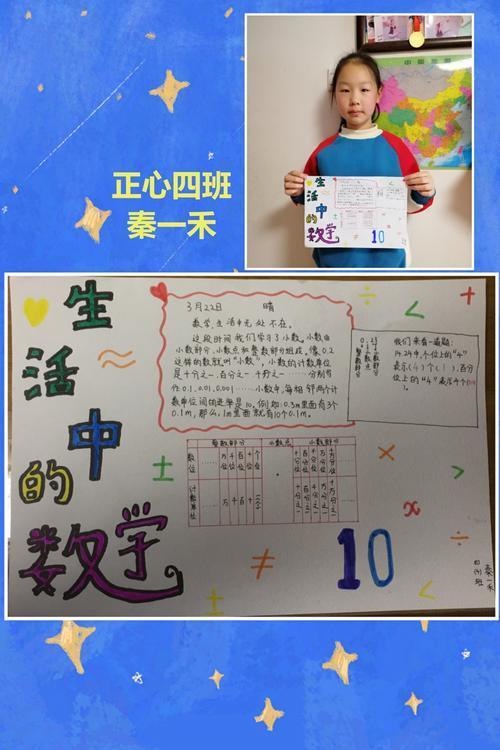 正心四班
秦一禾
生活中的数学
3月22日 晴
数学,生活中无处不在。
这段时间我们学习了小数。小数由
小数部分、小数点和整数部分组成,像0.2
这样的数就叫“小数”,小数的计数单位
是十分之一、百分之一、千分之一……分别写
作0.1、0.01、0.001……小数中,每相邻两个计
数单位间的进率是10。例如:0.3m里面有3个
0.1m,那么,1m里面就有10个0.1m。
我们来看一道题:
14.24中,个位上的“4”
表示(4)个(1),百分
位上的“4”表示4个0.01。
整数部分 小数点 小数部分
数位 …… 万位 千位 百位 十位 个位 · 十分位 百分位 千分位 万分位 ……
计数单位 …… 万 千 百 十 一(个) 十分之一 百分之一 千分之一 万分之一 ……
10
四(4)班
秦一禾